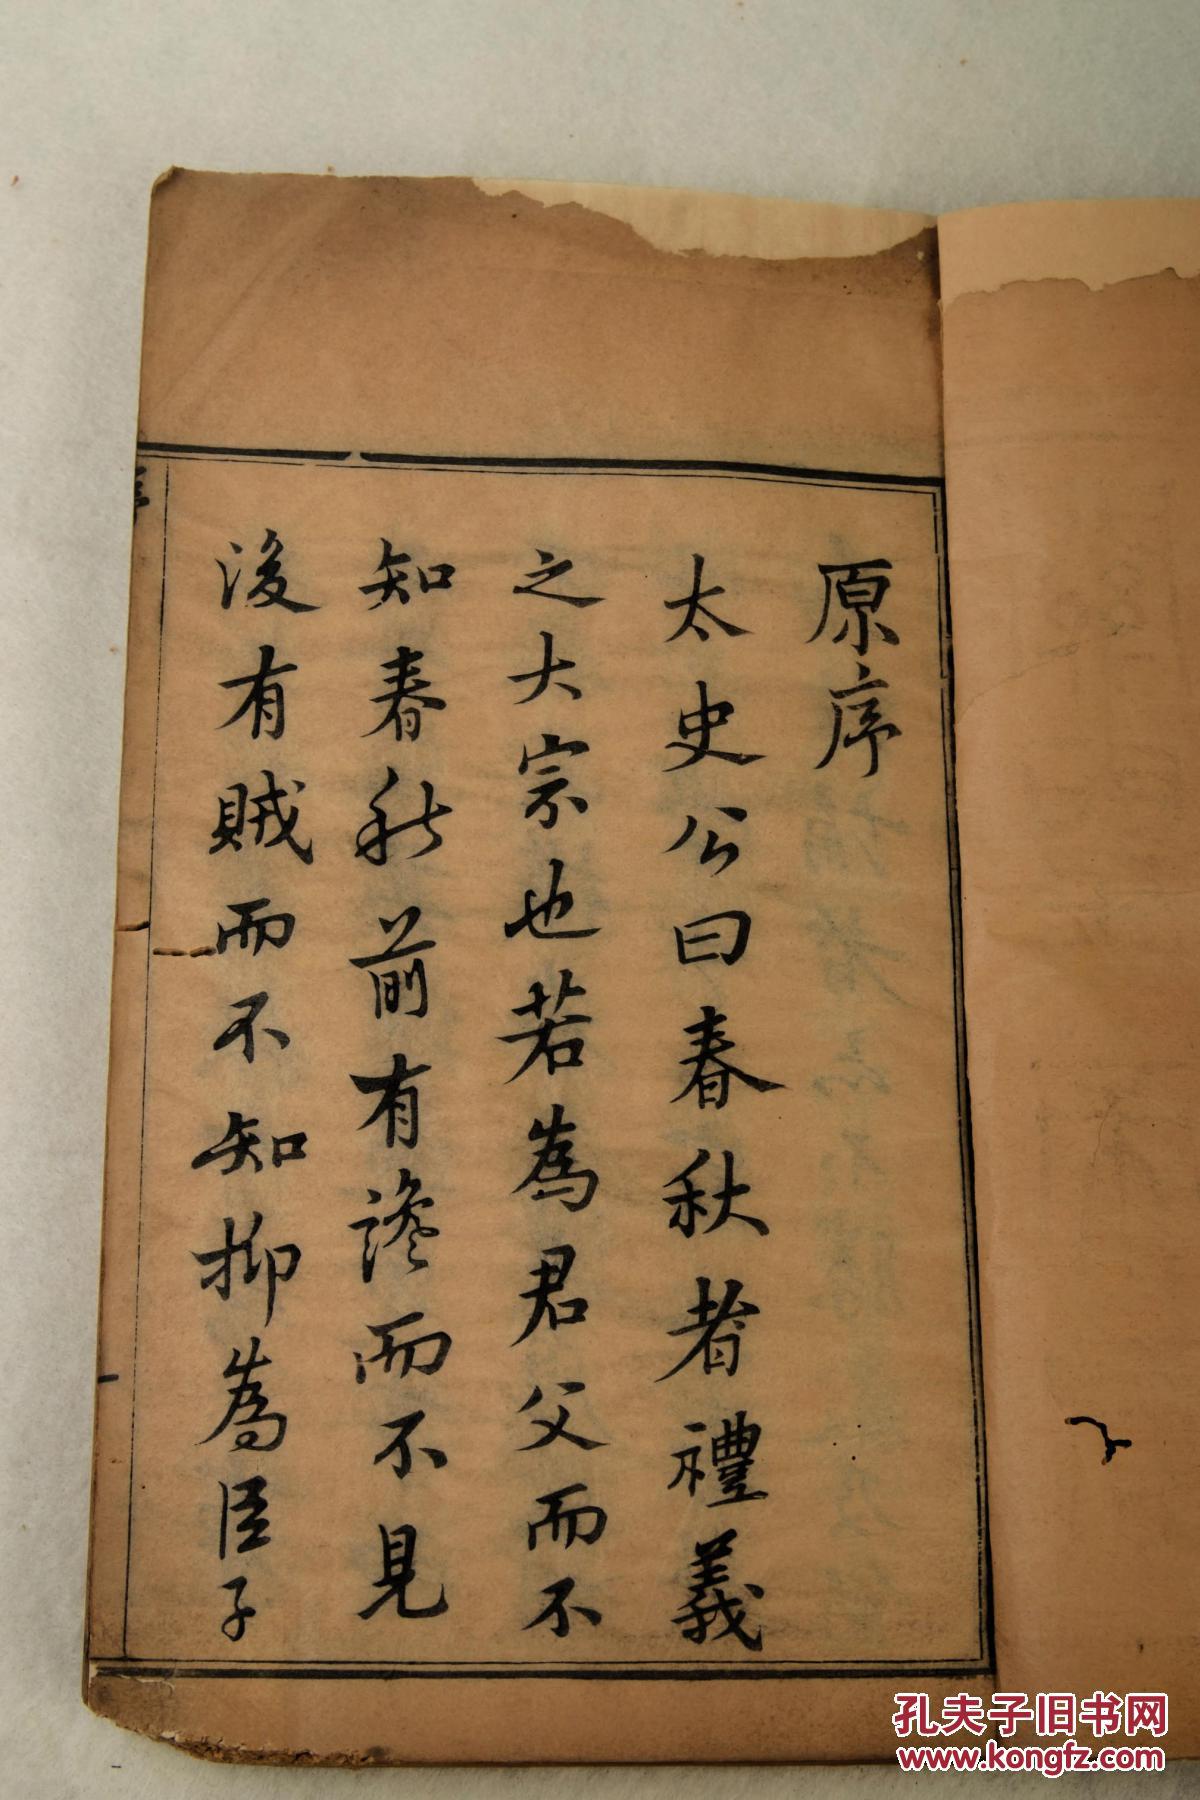 原序
太史公曰春秋者禮義
之大宗也若為君父而不
知春秋前有讒而不見
後有賊而不知抑為臣子
孔夫子旧书网
www.kongfz.com